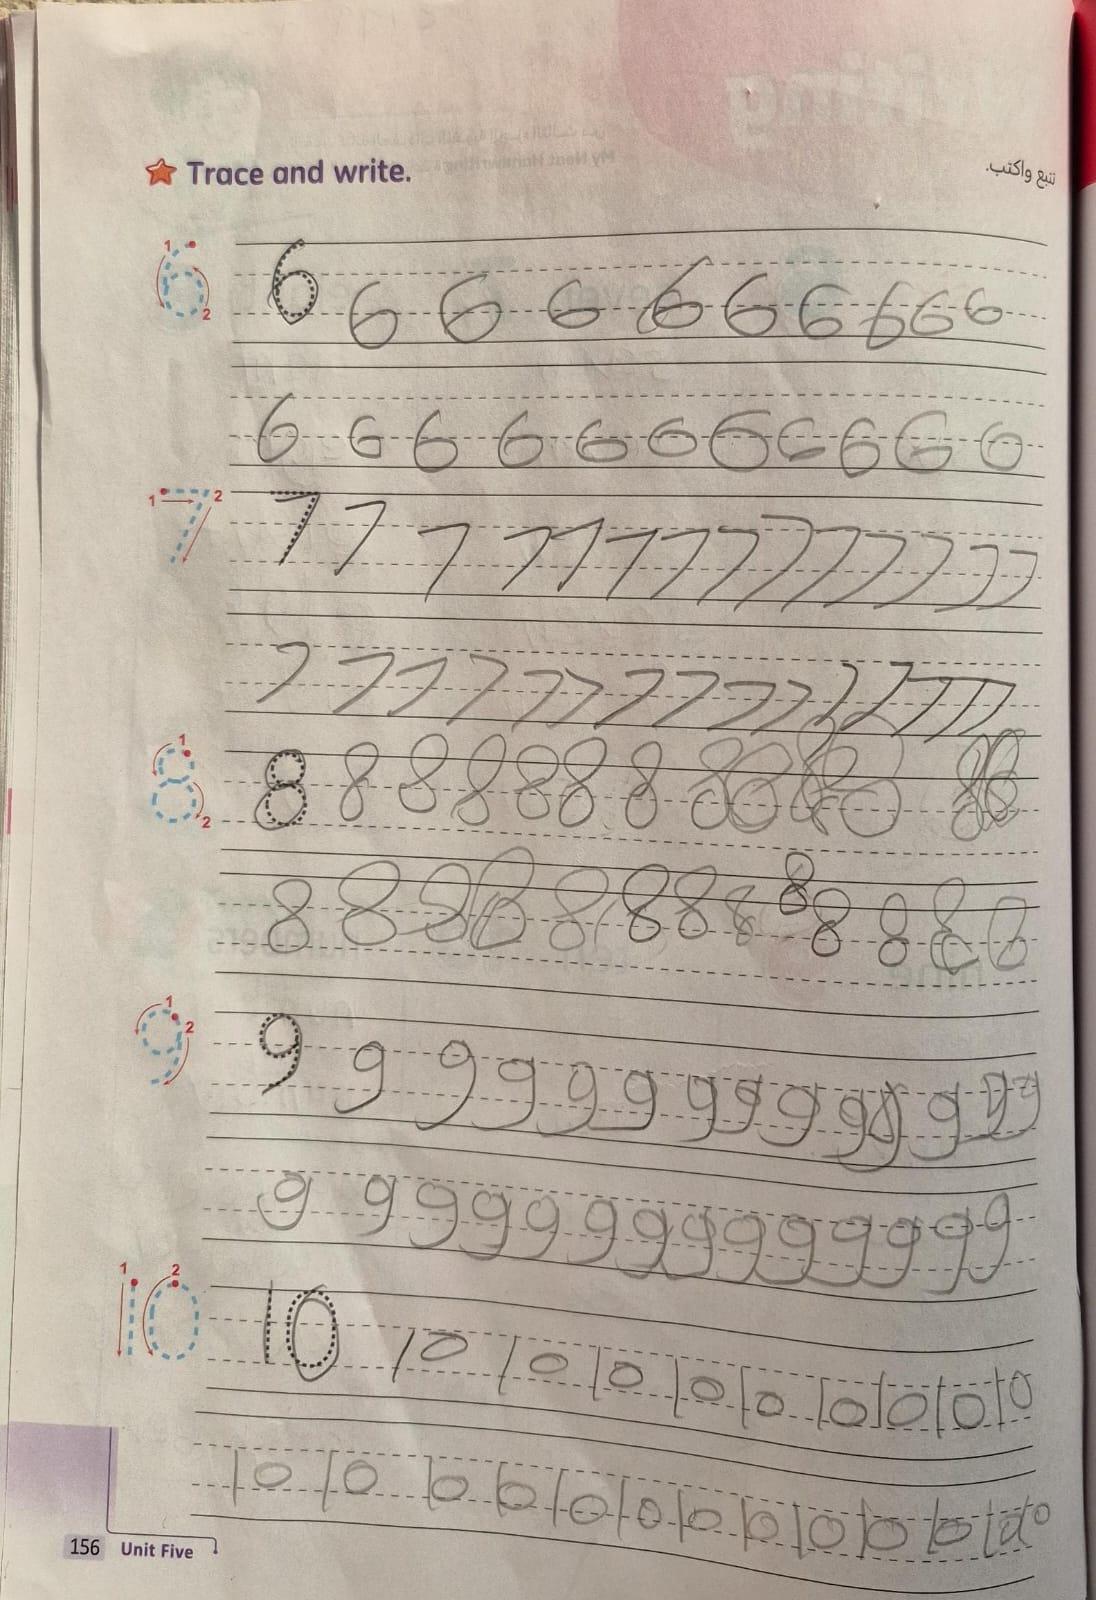 Trace and write.
تتبع واكتب.
1 2 6 6 6 6 6 6 6 6 6 6 6
6 6 6 6 6 6 6 6 6 6 6
1 2 7 7 7 7 7 7 7 7 7 7 7 7 7 7 7
7 7 7 7 7 7 7 7 7 7 7 7 7 7 7
1 2 8 8 8 8 8 8 8 8 8 8 8 8 8 8
8 8 8 8 8 8 8 8 8 8 8 8 8
1 2 9 9 9 9 9 9 9 9 9 9 9 9 9 9 9
9 9 9 9 9 9 9 9 9 9 9 9 9 9
1 2 10 10 10 10 10 10 10 10 10 10 10
10 10 10 10 10 10 10 10 10 10 10 10
156 Unit Five